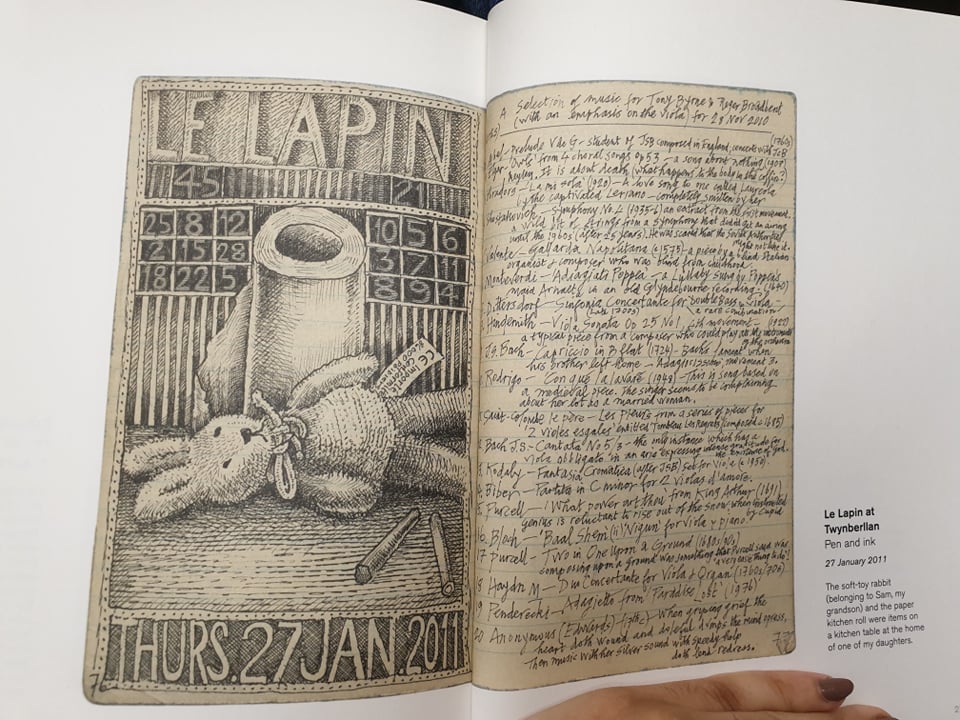 LE LAPIN
45 21
25 8 12
2 15 28
18 22 5
10 5 6
3 7 11
8 9 4
CE
Import
THURS. 27 JAN 2011
76
A selection of music for Tony Byrne & Roger Broadbent
(with an emphasis on the viola) for 29 Nov 2010
Prelude V de G - student of JSB composed in England, concerts with JCB (1760s)
'Owls' from 4 choral songs op 53 - a song about 'nothing' (1907)
It is about death (what happens to the body in the coffin?)
La mi sola (1920) - A love song to one called Laureola
by the captivated Leriano - completely smitten by her
Symphony No 4 (1935-6) an extract from the first movement.
a viola bit of strings from a Symphony that didn't get an airing
until the 1960s (after 25 years). He was scared that the Soviet Authorities
might not like it.
Valente - Gallarda Napolitana (c 1575) a piece by a blind Italian
organist & composer who was blind from childhood.
Monteverdi - Adagiati Poppea - a Lullaby sung by Poppea's
maid Arnalta in an old Glyndebourne recording - (1640)
Dittersdorf - Sinfonia Concertante for Double Bass & Viola -
(late 1700s) a rare combination
Hindemith - Viola Sonata Op 25 No 1 4th movement - (1922)
a typical piece from a composer who could play all the instruments
of the orchestra
J.S. Bach - Capriccio in B flat (1724) - Bach's lament when
his brother left home - Adagiosissimo movement 3.
Rodrigo - Con qué la lavaré (1948) - This is song based on
a medieval piece. The singer seems to be complaining
about her lot as a married woman.
Saint-Colombe le père - Les Pleurs from a series of pieces for
'2 violes esgales' entitled Tombeau Les Regrets (composed c 1685)
Bach J.S. - Cantata No 5/3 - the only instance which has a
viola obbligato in an aria expressing intense gratitude for
the existence of God.
Kodaly - Fantasia Cromatica (after JSB) set for viola (c 1950).
Biber - Partita in C minor for 2 violas d'amore.
Purcell - 'What power art thou' from King Arthur (1691)
genius is reluctant to rise out of the snow when instructed
by Cupid
16 Bloch - 'Baal Shem' (ii) 'Nigun' for viola & piano
17 Purcell - Two in One Upon a Ground (1680s/90s)
composing upon a ground was something that Purcell said was
'a very easie thing to do'!
18 Haydn M - Duo Concertante for Viola & Organ (1760s/70s)
19 Penderecki - Adagietto from 'Paradise Lost' (1976)
20 Anonymous (Edwards) (16thc) When griping grief the
heart doth wound and doleful dumps the mind opress,
Then music with her silver sound with speedy help
doth lend redress.
77
Le Lapin at
Twynberllan
Pen and ink
27 January 2011
The soft-toy rabbit
(belonging to Sam, my
grandson) and the paper
kitchen roll were items on
a kitchen table at the home
of one of my daughters.